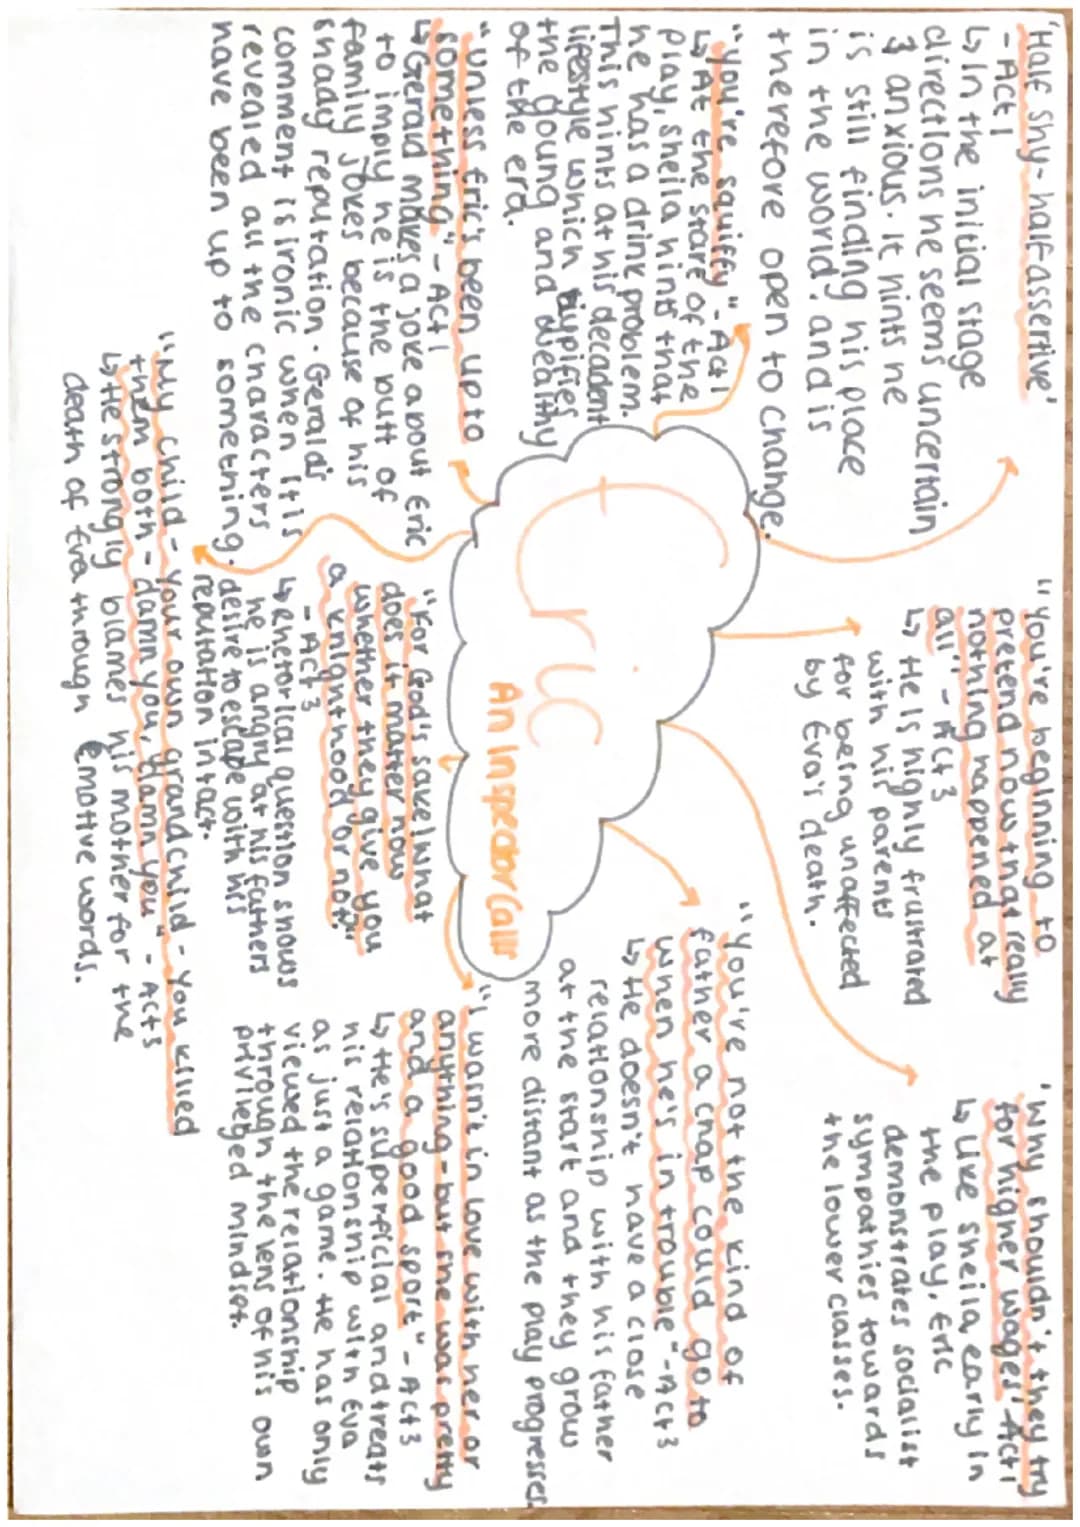 'Half shy-half assertive'
- Act 1
↳ In the initial stage
directions he seems uncertain
& anxious. It hints he
is still finding his place
in the world, and is
therefore open to change.
"You're squiffy" - Act 1
↳ At the start of the
play, sheila hints that
he has a drink problem.
This hints at his decadent
lifestyle which typifies
the young and wealthy
of the era.
"unless Eric's been up to
something" - Act 1
↳ Gerald makes a joke about Eric
to imply he is the butt of
family jokes because of his
shady reputation. Gerald's
comment is ironic when it is
revealed all the characters
have been up to something.
"My child - your own grandchild - you killed
them both - damn you, damn you" - Act 3
↳ He strongly blames his mother for the
death of Eva through emotive words.
Eric
An Inspector Calls
"You're beginning to
pretend now that really
nothing happened at
all" - Act 3
↳ He is highly frustrated
with his parents
for being unaffected
by Eva's death.
"For God's sake! what
does it matter now
whether they give you
a knighthood or not?"
- Act 3
↳ rhetorical question shows
he is angry at his fathers
desire to escape with his
reputation intact.
'Why shouldn't they try
for higher wages' Act 1
↳ Like sheila, early in
the play, Eric
demonstrates socialist
sympathies towards
the lower classes.
"You're not the kind of
father a chap could go to
when he's in trouble" - Act 3
↳ He doesn't have a close
relationship with his father
at the start and they grow
more distant as the play progresses.
"I wasn't in love with her or
anything - but she was pretty
and a good sport" - Act 3
↳ He's superficial and treats
his relationship with Eva
as just a game. He has only
viewed the relationship
through the lens of his own
priviliged mindset.